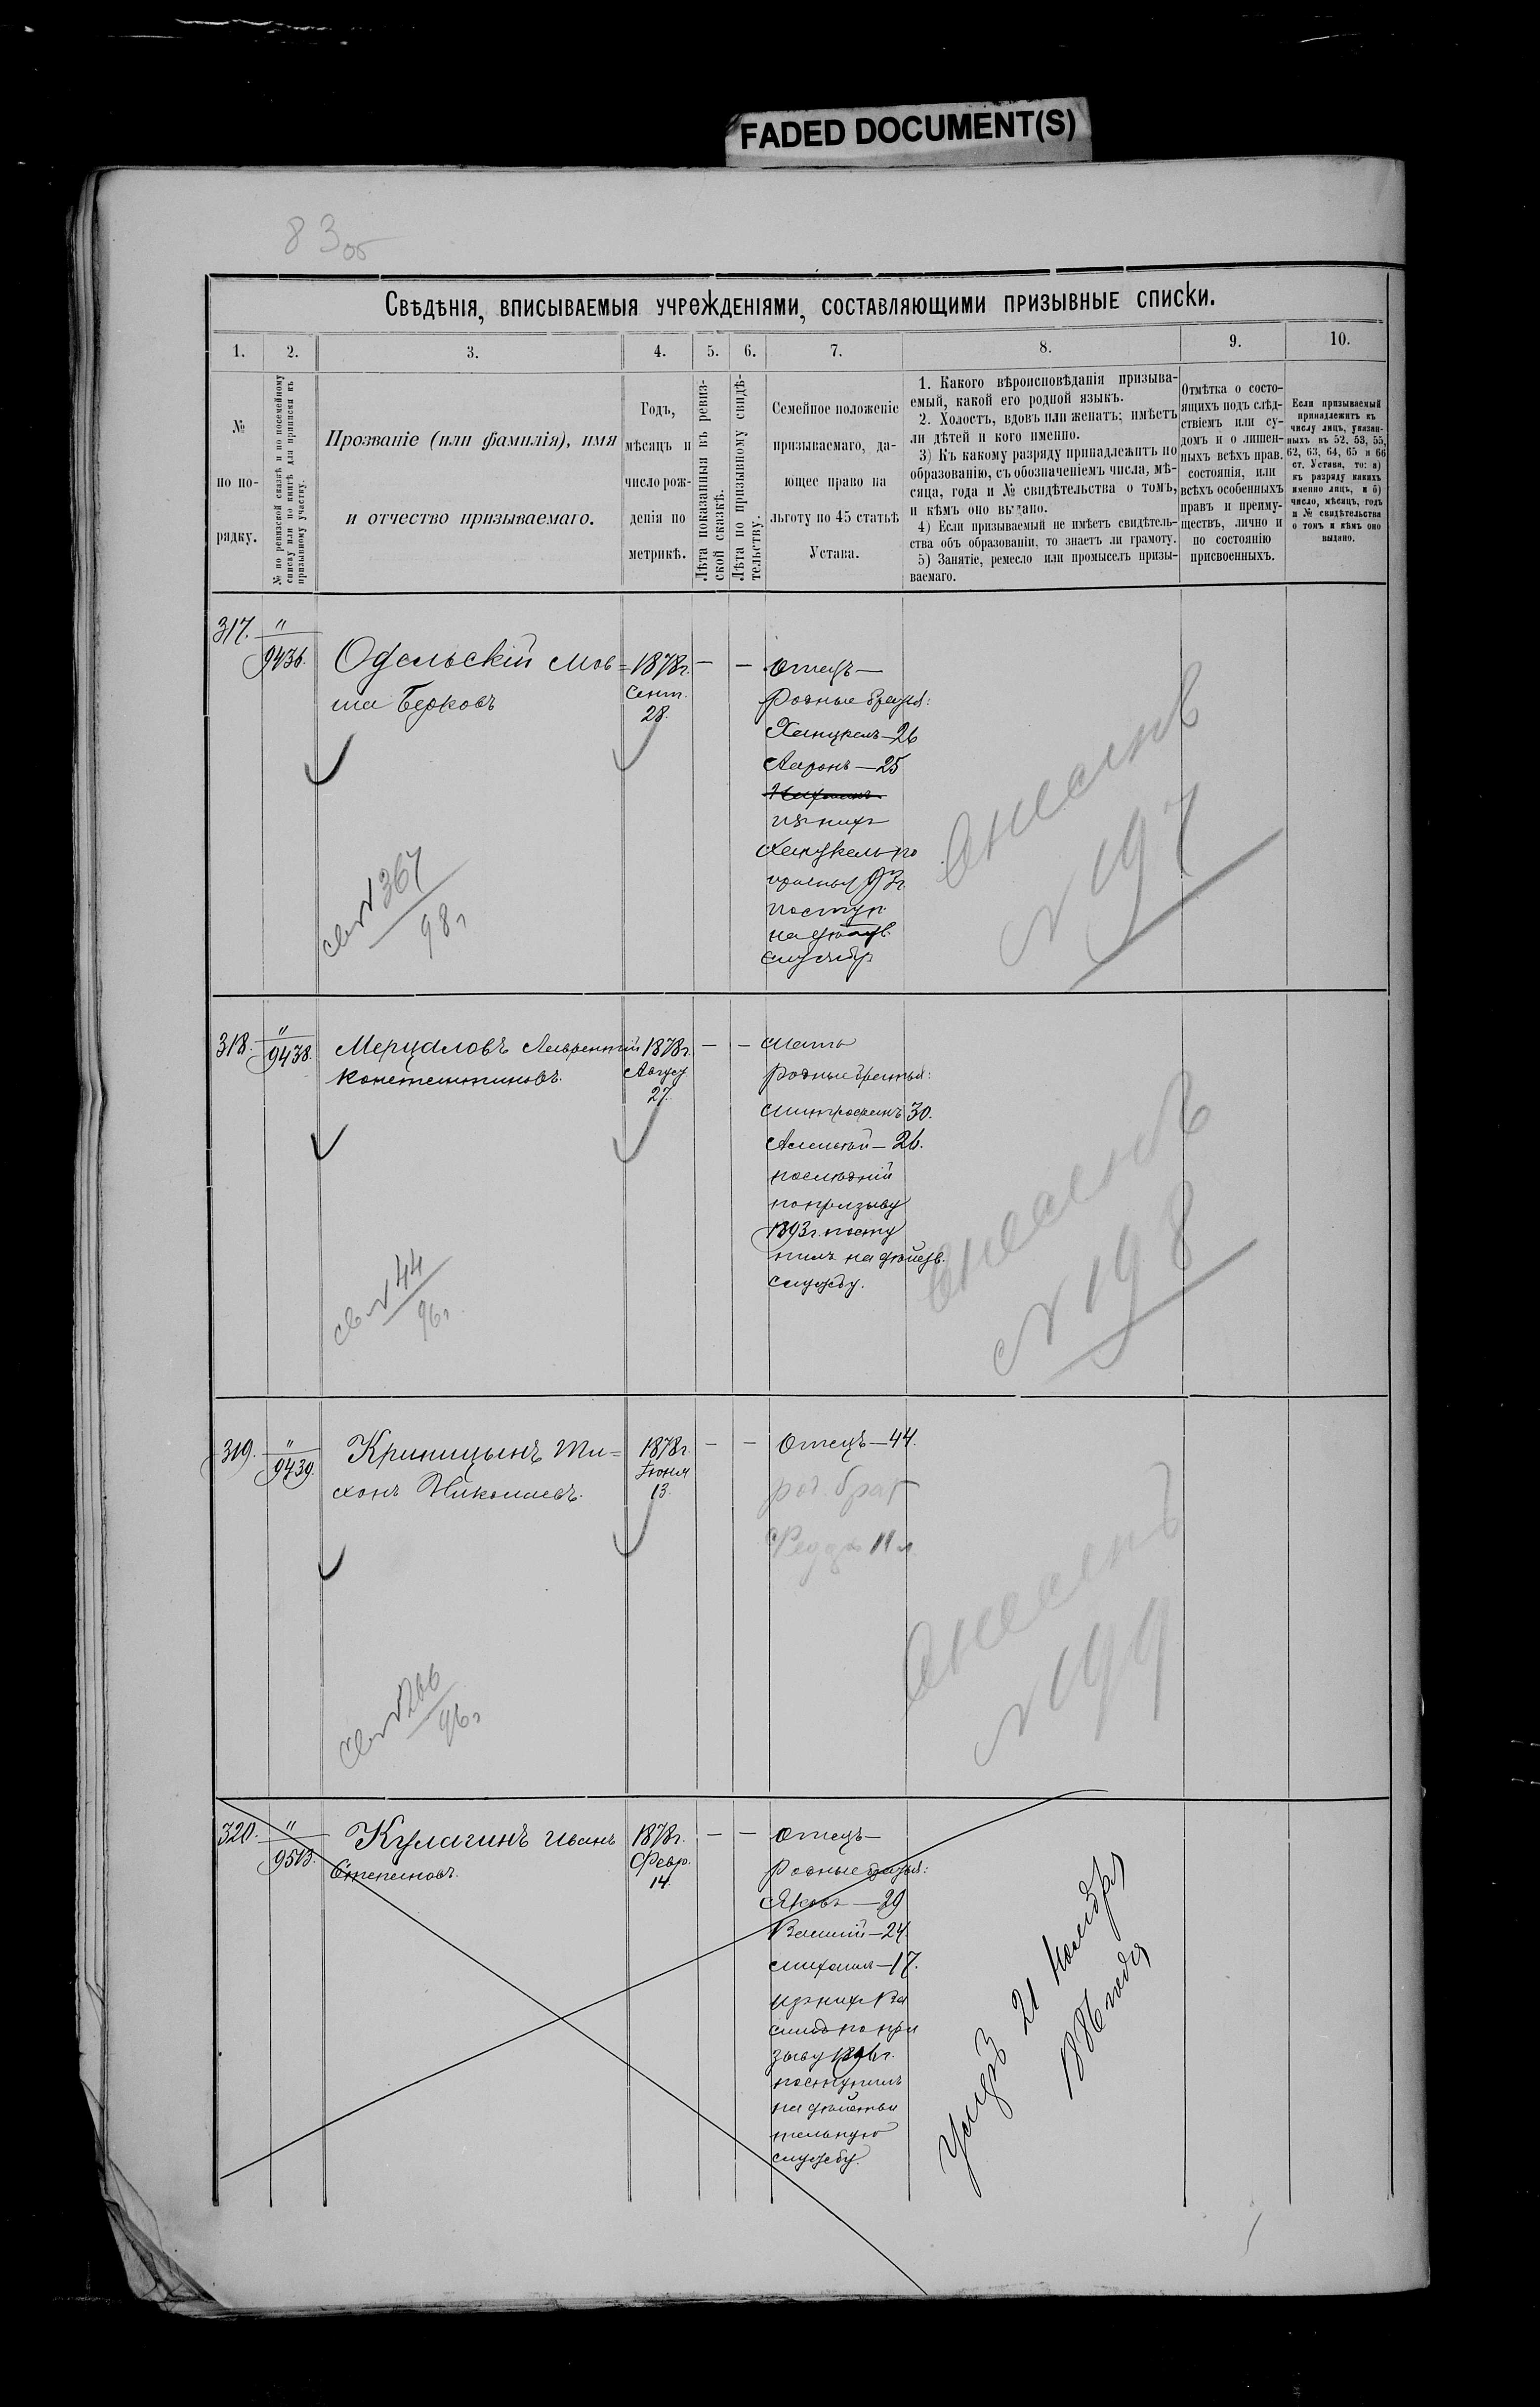 FADED DOCUMENT(S)
83 об
Свѣдѣнія, вписываемыя учрежденіями, составляющими призывные списки.
1. 2. 3. 4. 5. 6. 7. 8. 9. 10.
№
по по-
рядку.
№ по ревизской сказкѣ и по посемейному
списку или по книгѣ для приписки къ
призывному участку.
Прозваніе (или фамилія), имя
и отчество призываемаго.
Годъ,
мѣсяцъ и
число рож-
денія по
метрикѣ.
Лѣта показанныя въ ревиз-
ской сказкѣ.
Лѣта по призывному свидѣ-
тельству.
Семейное положеніе
призываемаго, да-
ющее право на
льготу по 45 статьѣ
Устава.
1. Какого вѣроисповѣданія призыва-
емый, какой его родной языкъ.
2. Холостъ, вдовъ или женатъ; имѣетъ
ли дѣтей и кого именно.
3) Къ какому разряду принадлежитъ по
образованію, съ обозначеніемъ числа, мѣ-
сяца, года и № свидѣтельства о томъ,
и кѣмъ оно выдано.
4) Если призываемый не имѣетъ свидѣтель-
ства объ образованіи, то знаетъ ли грамоту.
5) Занятіе, ремесло или промыселъ призы-
ваемаго.
Отмѣтка о состо-
ящихъ подъ слѣд-
ствіемъ или су-
домъ и о лишен-
ныхъ всѣхъ прав.
состоянія, или
всѣхъ особенныхъ
правъ и преиму-
ществъ, лично и
по состоянію
присвоенныхъ.
Если призываемый
принадлежитъ къ
числу лицъ, указан-
ныхъ въ 52, 53, 55,
62, 63, 64, 65 и 66
ст. Устава, то: а)
къ разряду какихъ
именно лицъ, и б)
число, мѣсяцъ, годъ
и № свидѣтельства
о томъ и кѣмъ оно
выдано.
317.
"
9436.
Одельскій Мов=
ша Берковъ
1878г.
Сент.
28.
— —
Отецъ —
Родные братья:
Ханукель — 26
Ааронъ — 25
изъ нихъ
Ханукель по
призыв 93г.
поступ.
на дѣйств.
службу
св № 367
98 г
внесенъ
№ 197
318.
"
9438.
Мерцаловъ Лаврентій
Константиновъ.
1878г.
Август
27.
— —
Мать
родные братья:
Митрофанъ 30.
Алексѣй — 26.
послѣдній
по призыву
1893г. посту
пилъ на дѣйств.
службу.
св № 44
96 г
внесенъ
№ 198
319.
"
9439.
Криницынъ Ти=
хонъ Николаевъ.
1878г.
Іюня
13.
— —
Отецъ — 44.
род. брат
Федоръ 11 л
св № 266
96 г
внесенъ
№ 199
320.
"
9513.
Кулагинъ Иванъ
Степановъ.
1878г.
Февр.
14.
— —
Отецъ —
Родные братья:
Яковъ — 29
Василій — 24
Михаилъ — 17.
изъ нихъ Ва
силій по при
зыву 1896г.
поступилъ
на дѣйстви
тельную
службу.
Умеръ 21 Ноября
1886 года